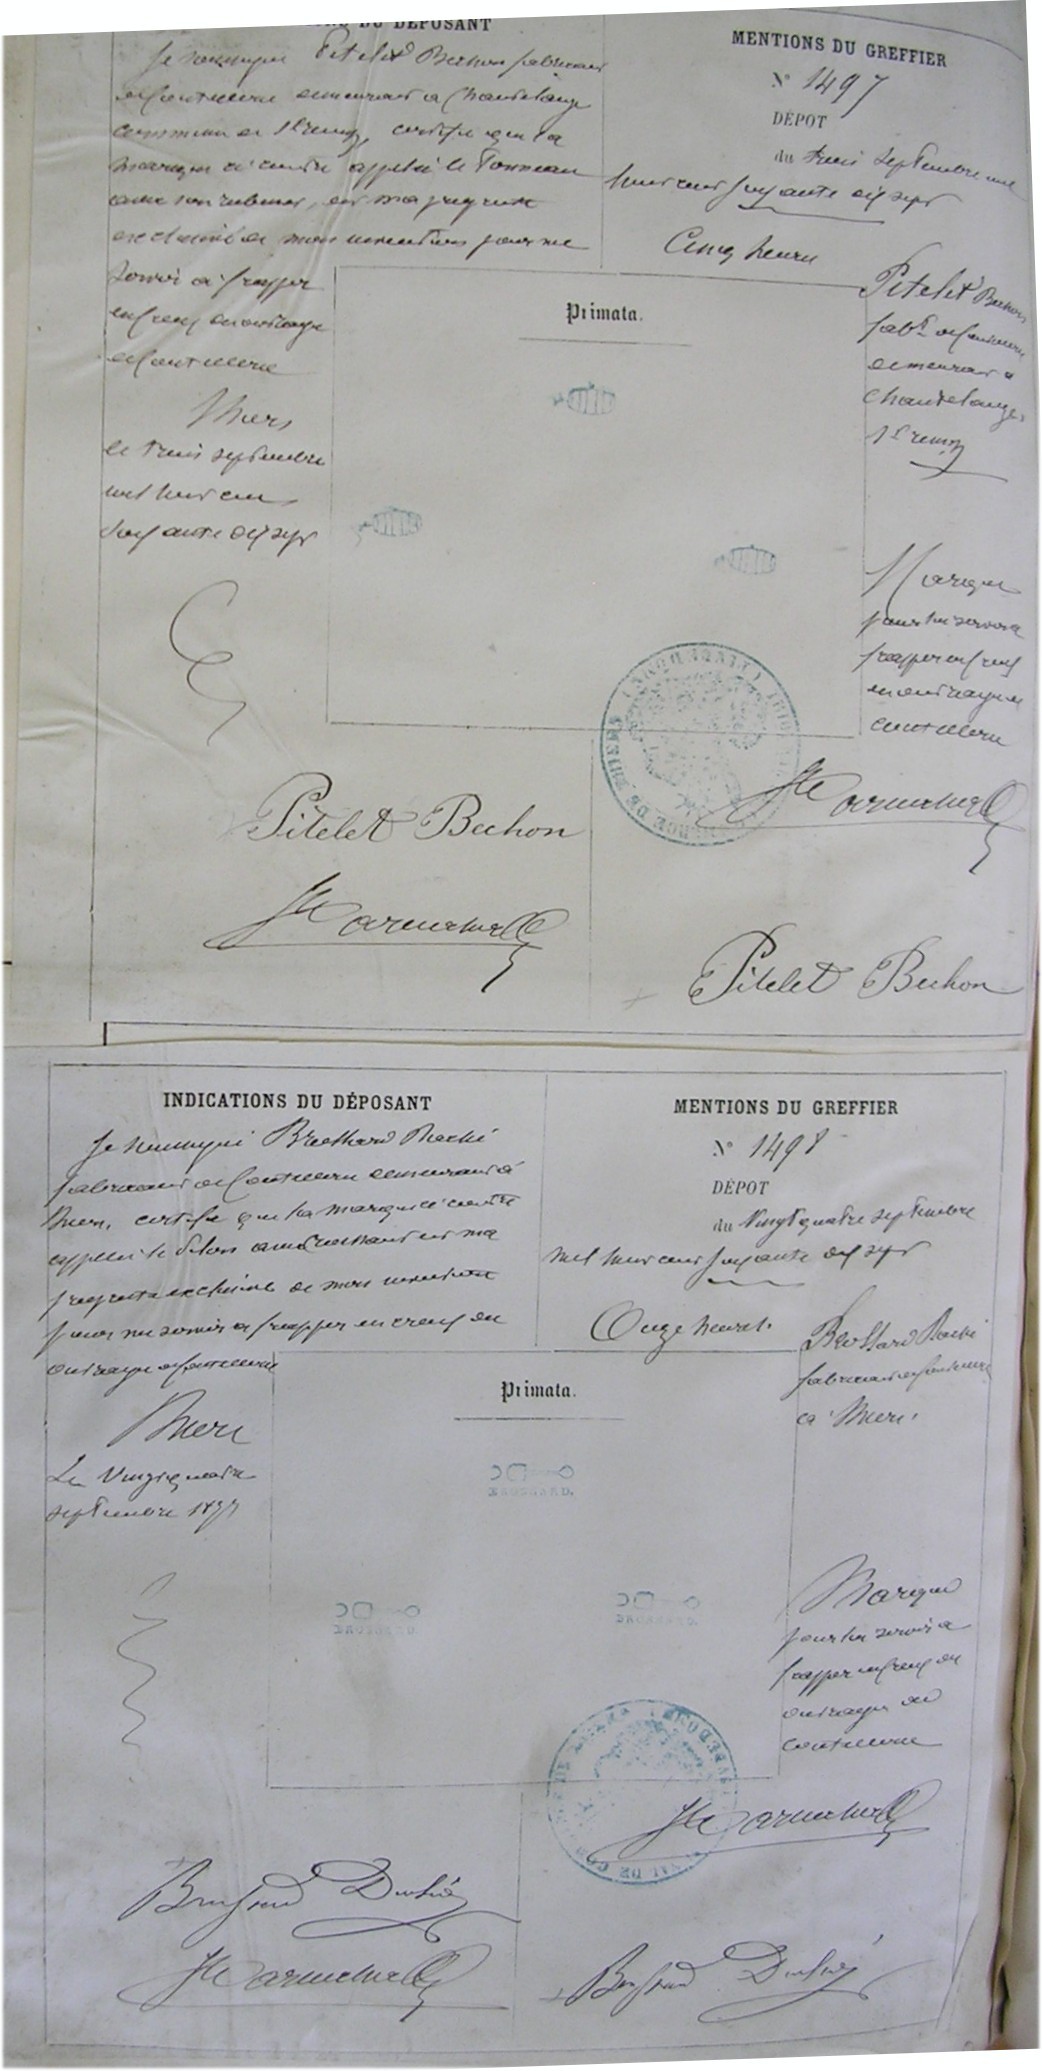 INDICATIONS DU DÉPOSANT
Je soussigné Pitelet Bechon fabricant
de Coutellerie demeurant a Chantelauze
commune de St remy, certifie que la
marque ci contre appelée le Tonneau
avec son robinet, est ma propriété
exclusive de mon invention pour me
servir a frapper
en creux en ouvrage
de Coutellerie
Thiers
le trois septembre
mil huit cent
soixante dix sept
Pitelet Bechon
MENTIONS DU GREFFIER
N° 1497
DÉPOT
du trois septembre mil
huit cent soixante dix sept
Cinq heures
Primata.
Pitelet Bechon
fabt de Coutellerie
demeurant a
Chantelauze
St remy
Marque
pour lui servir a
frapper en creux
en ouvrage de
coutellerie
Pitelet Bechon
INDICATIONS DU DÉPOSANT
Je soussigné
fabricant de Coutellerie demeurant à
Thiers, certifie que la marque ci contre
appelée le
propriété exclusive de mon invention
pour me servir a frapper en creux en
ouvrage de Coutellerie
Thiers
Le Vingt quatre
septembre 1877
MENTIONS DU GREFFIER
N° 1498
DÉPOT
du Vingt quatre septembre
mil huit cent soixante dix sept
Onze heures
Primata.
fabricant de Coutellerie
a Thiers
Marque
pour lui servir a
frapper en creux en
ouvrage de
coutellerie